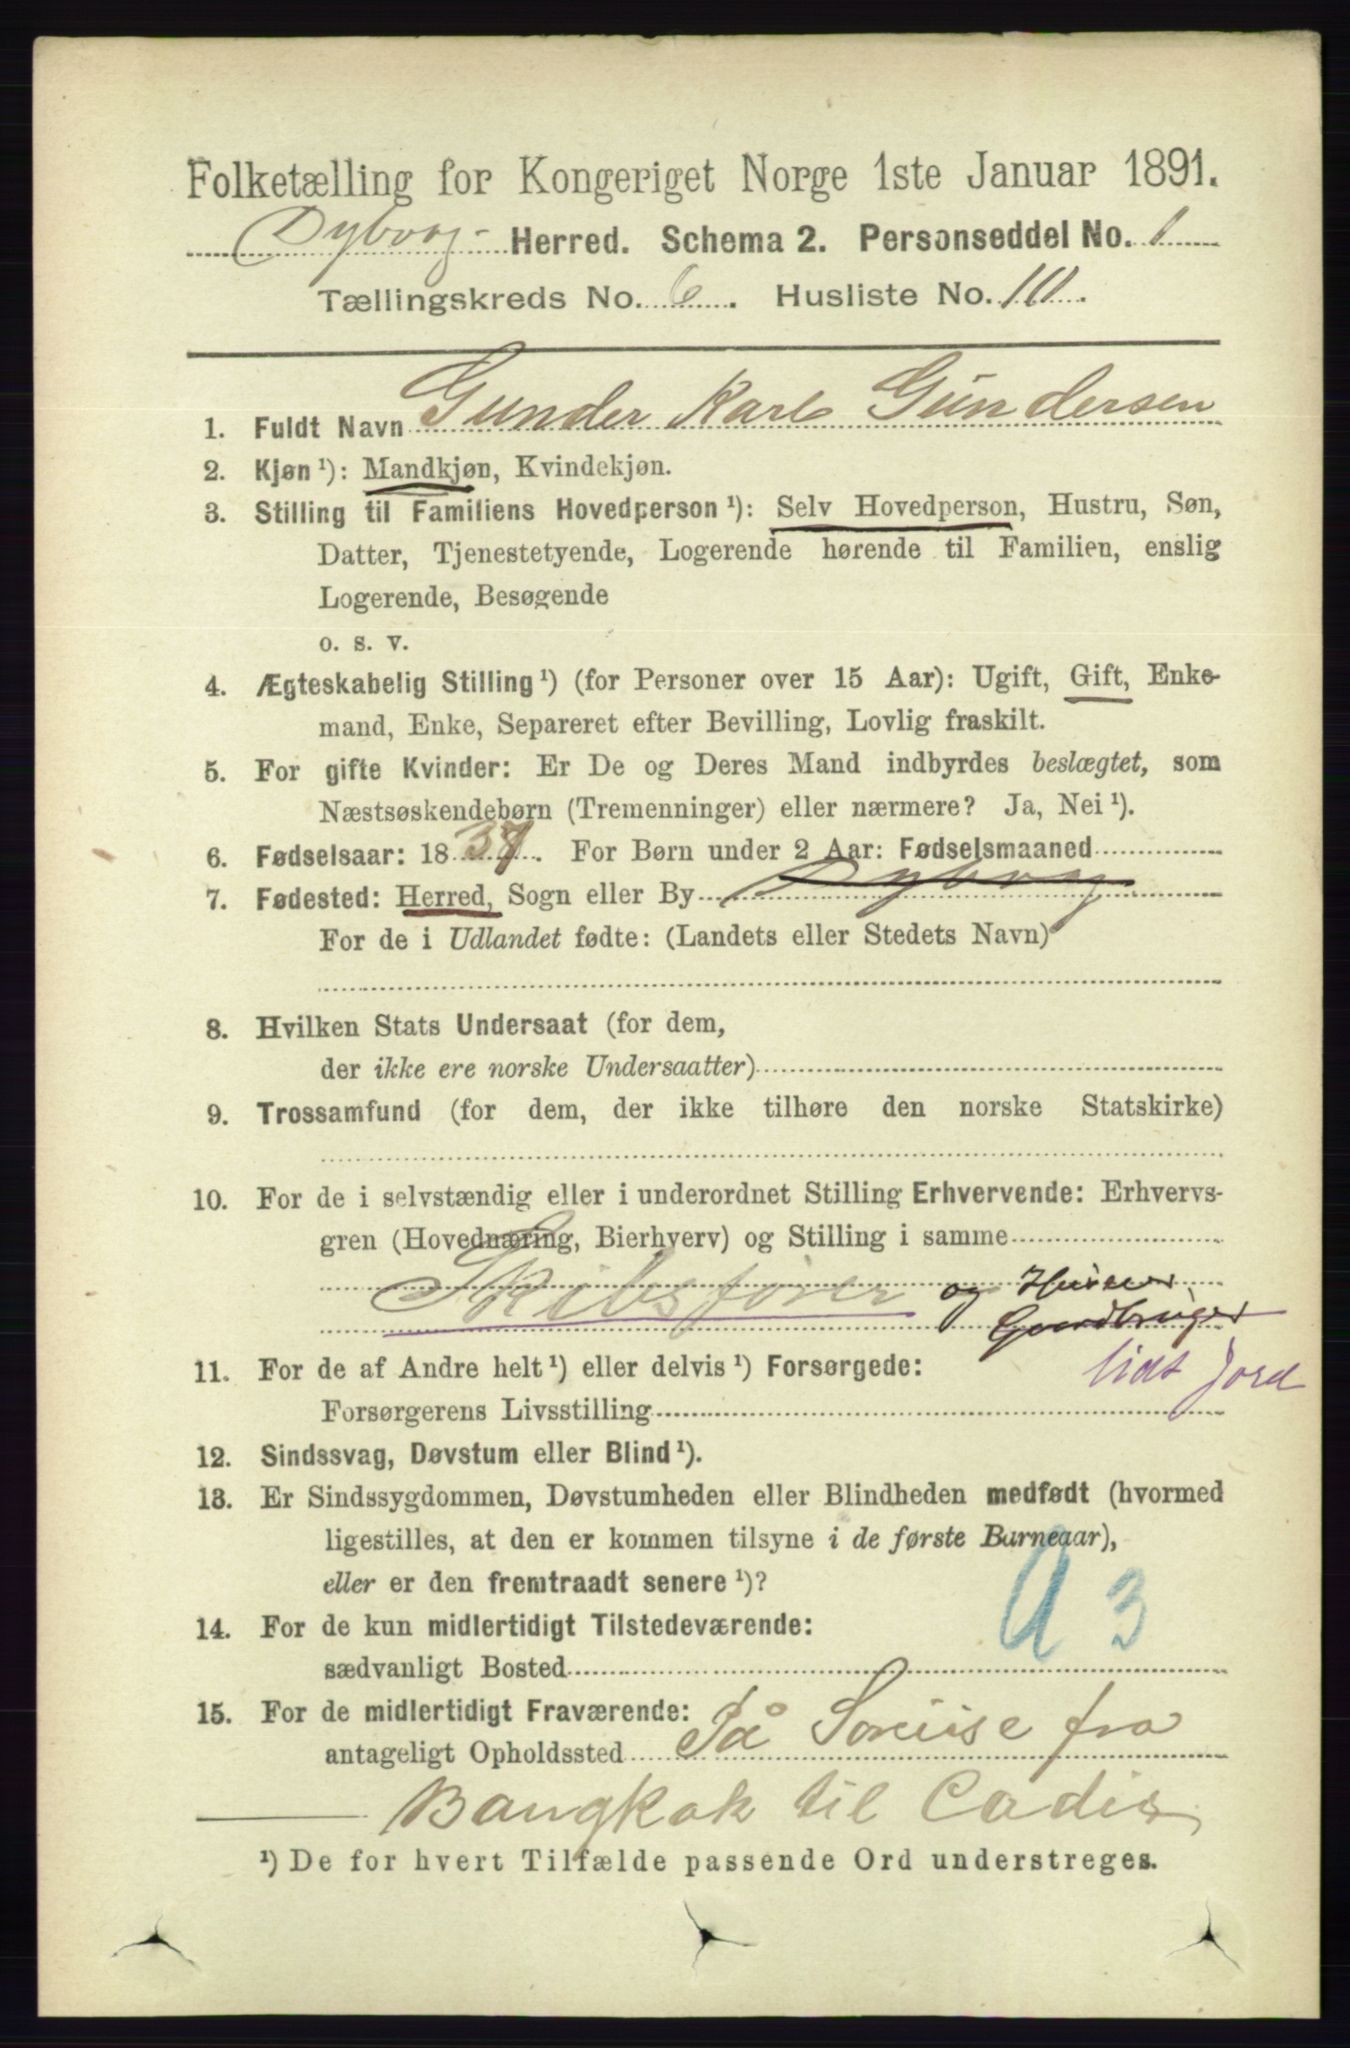 Folketælling for Kongeriget Norge 1ste Januar 1891.
Dybvag Herred. Schema 2. Personseddel No. 1
Tællingskreds No. 6. Husliste No. 10.
1. Fuldt Navn Gunder Karl Gundersen
2. Kjøn ¹): Mandkjøn, Kvindekjøn.
3. Stilling til Familiens Hovedperson ¹): Selv Hovedperson, Hustru, Søn,
Datter, Tjenestetyende, Logerende hørende til Familien, enslig
Logerende, Besøgende
o. s. v.
4. Ægteskabelig Stilling ¹) (for Personer over 15 Aar): Ugift, Gift, Enke-
mand, Enke, Separeret efter Bevilling, Lovlig fraskilt.
5. For gifte Kvinder: Er De og Deres Mand indbyrdes beslægtet, som
Næstsøskendebørn (Tremenninger) eller nærmere? Ja, Nei ¹).
6. Fødselsaar: 1837. For Børn under 2 Aar: Fødselsmaaned
7. Fødested: Herred, Sogn eller By Dybvag
For de i Udlandet fødte: (Landets eller Stedets Navn)
8. Hvilken Stats Undersaat (for dem,
der ikke ere norske Undersaatter)
9. Trossamfund (for dem, der ikke tilhøre den norske Statskirke)
10. For de i selvstændig eller i underordnet Stilling Erhvervende: Erhvervs-
gren (Hovednæring, Bierhverv) og Stilling i samme
Skibsfører og Huseier
Gaardbruger
11. For de af Andre helt ¹) eller delvis ¹) Forsørgede: lidt Jord
Forsørgerens Livsstilling
12. Sindssvag, Døvstum eller Blind ¹).
13. Er Sindssygdommen, Døvstumheden eller Blindheden medfødt (hvormed
ligestilles, at den er kommen tilsyne i de første Barneaar),
eller er den fremtraadt senere ¹)?
3
14. For de kun midlertidigt Tilstedeværende:
sædvanligt Bosted
15. For de midlertidigt Fraværende:
antageligt Opholdssted På fra
Bangkok til Cadix
¹) De for hvert Tilfælde passende Ord understreges.